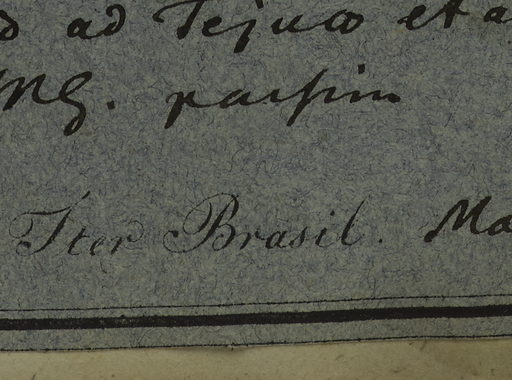 ad Tejuco et a
MG. passim
Iter Brasil. Ma